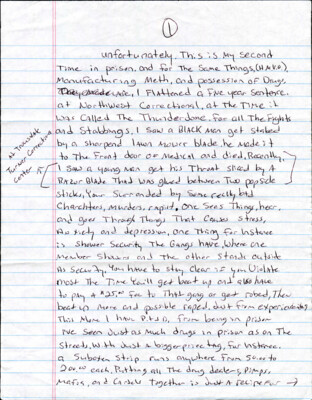 1
unfortunately. This is My second
Time in prison, and for The Same Things, (HARD),
Manufacturing Meth, and possession of Drugs.
I Flattened a Five year Sentence.
at Northwest Correctional, at The Time it
was Called The Thunderdome. For all The Fights
and Stabbings, I Saw a BLACK Man get stabed
by a sharpend lawn Mower blade, he made it
to The Front door of Medical and died, Recently,
At Trousdale
Turner Correctional
Center
I Saw a young Man get his Throat Sliced by A
Razor Blade That was glued between Two popsicle
Sticks, Your Surrounded by Some really bad
Charichters, Murders, rapist, One Sees Things, hear,
and goes Through Things That Causes Stress,
Anxiety and depression, One Thing for Instance
is Shower Security The Gangs have, where one
Member Showers and The other Stands outside
As Security, You have to Stay Clear if you Violate
Most The Time You'll get beat up and also have
to pay A $25.00 Fee to That gang or get robed, Then
beat up More and possible raped.
This More I have from being in prison
I've Seen Just as Much drugs in prison as on The
Streets, With Just a bigger price tag, For Instance.
a Suboxen Strip runs anywhere From 50.00 to
200.00 each, Putting all The drug dealers, Pimps,
Mafia, and Together is Just A recipe For →